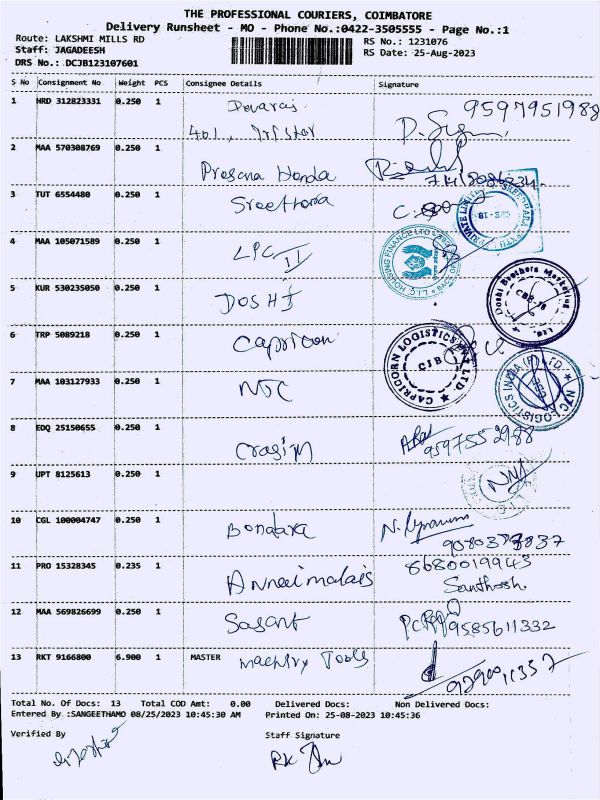 THE PROFESSIONAL COURIERS, COIMBATORE
Delivery Runsheet - MO - Phone No.:0422-3505555 - Page No.:1
Route: LAKSHMI MILLS RD RS No.: 1231076
Staff: JAGADEESH RS Date: 25-Aug-2023
DRS No.: DCJB123107601
S No Consignment No Weight PCS Consignee Details Signature
1 HRD 312823331 0.250 1 Devaraj 9597951988
401,
2 MAA 570308769 0.250 1 Prasana Honda
3 TUT 6554480 0.250 1 Sreethara
4 MAA 105071589 0.250 1 LIC II
5 KUR 530235050 0.250 1 DOSHI
Doshi Brothers Marketing
6 TRP 5089218 0.250 1 Capricorn
CAPRICORN LOGISTICS PVT LTD
CJB
7 MAA 103127933 0.250 1 NTC
NTC LOGISTICS INDIA (P) LTD.
8 EDQ 25150655 0.250 1
9 UPT 8125613 0.250 1
10 CGL 100004747 0.250 1
11 PRO 15328345 0.235 1 Annaimalais 8680019945
Santhosh.
12 MAA 569826699 0.250 1 9585611332
13 RKT 9166800 6.900 1 MASTER Machiry Tools
Total No. Of Docs: 13 Total COD Amt: 0.00 Delivered Docs: Non Delivered Docs:
Entered By :SANGEETHAMO 08/25/2023 10:45:30 AM Printed On: 25-08-2023 10:45:36
Verified By Staff Signature